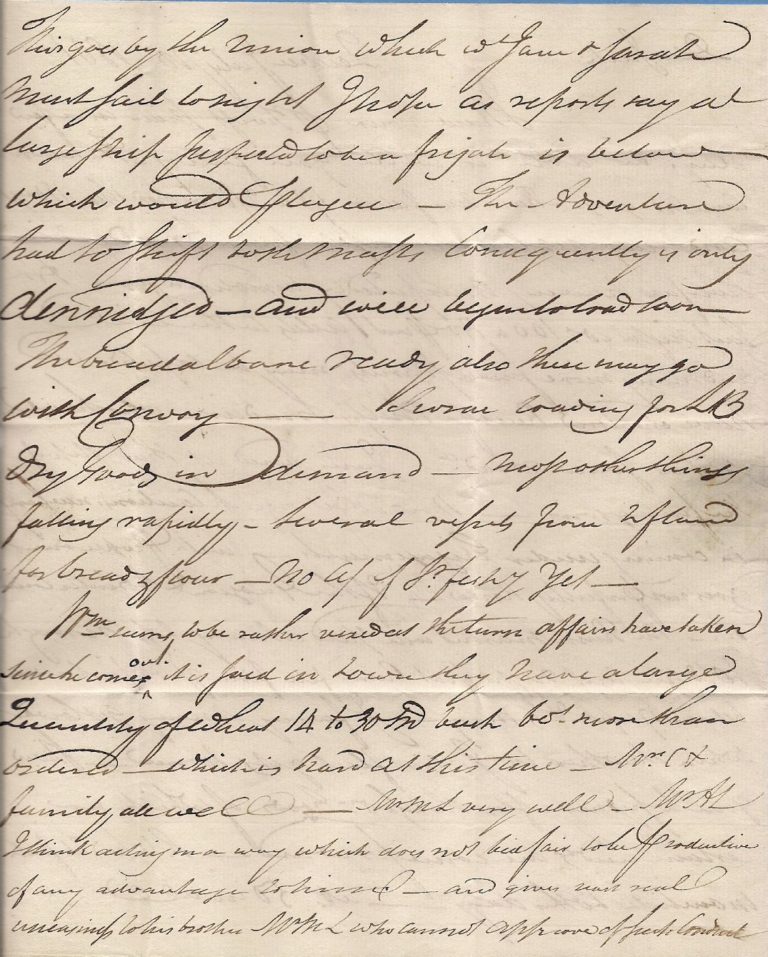 This goes by the Union which wt Jane & Sarah
must sail tonight I hope as reports say a
large ship suspected to be a frigate is below
which would — The Adventure
had to shift both masts Consequently is only
— and will begin to load soon
The breadalbane ready also these may go
with Convoy — loading for LB
Dry Goods in demand — most other things
falling rapidly — Several vessels from
for bread & flour — no of yet —
Wm seems to be rather vexed at the turn affairs have taken
since he comes out. it is said in town they have a large
Quantity of wheat 14 to 30 M bush bot more than
ordered — which is hard at this time — Mr C &
family all well — Mr ML very well — Mr AL
I think acting in a way which does not bid fair to be productive
of any advantage to himself — and gives real
uneasiness to his brother Mr ML who cannot approve of such Conduct